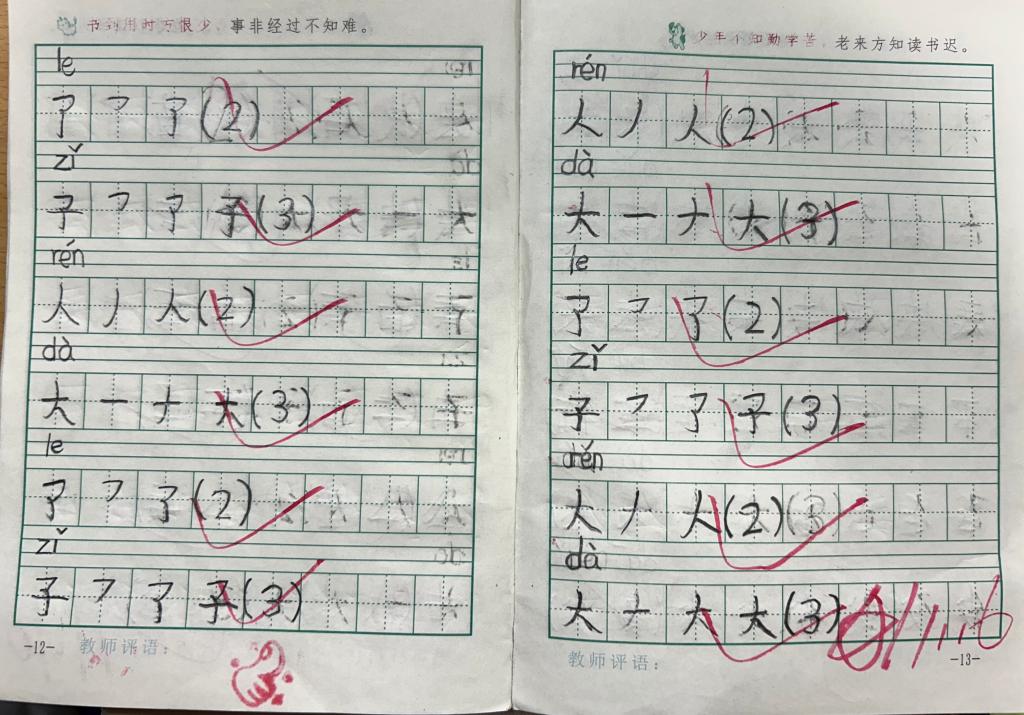 书到用时方恨少，事非经过不知难。
le
了 ㇇ 了 (2)
zǐ
子 ㇇ 了 子 (3)
rén
人 丿 人 (2)
dà
大 一 ナ 大 (3)
le
了 ㇇ 了 (2)
zǐ
子 ㇇ 了 子 (3)
-12- 教师评语：
少年不知勤学苦，老来方知读书迟。
rén
人 丿 人 (2)
dà
大 一 ナ 大 (3)
le
了 ㇇ 了 (2)
zǐ
子 ㇇ 了 子 (3)
rén
大 丿 人 (2)
dà
大 ナ 大 大 (3)
教师评语： -13-